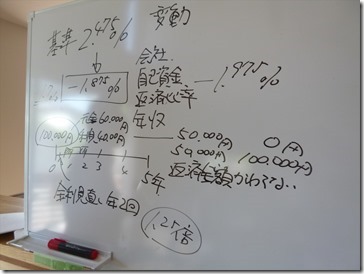 変動
基準 2.475%
↓
-1.875%
会社
自己資金 -1.975%
返済比率
年収
元金60,000円
利息40,000円
100,000円
50,000円 0円
50,000円 100,000円
返済金額かわらない
0 1 2 3 4 5年
金利見直し年2回
1.25倍